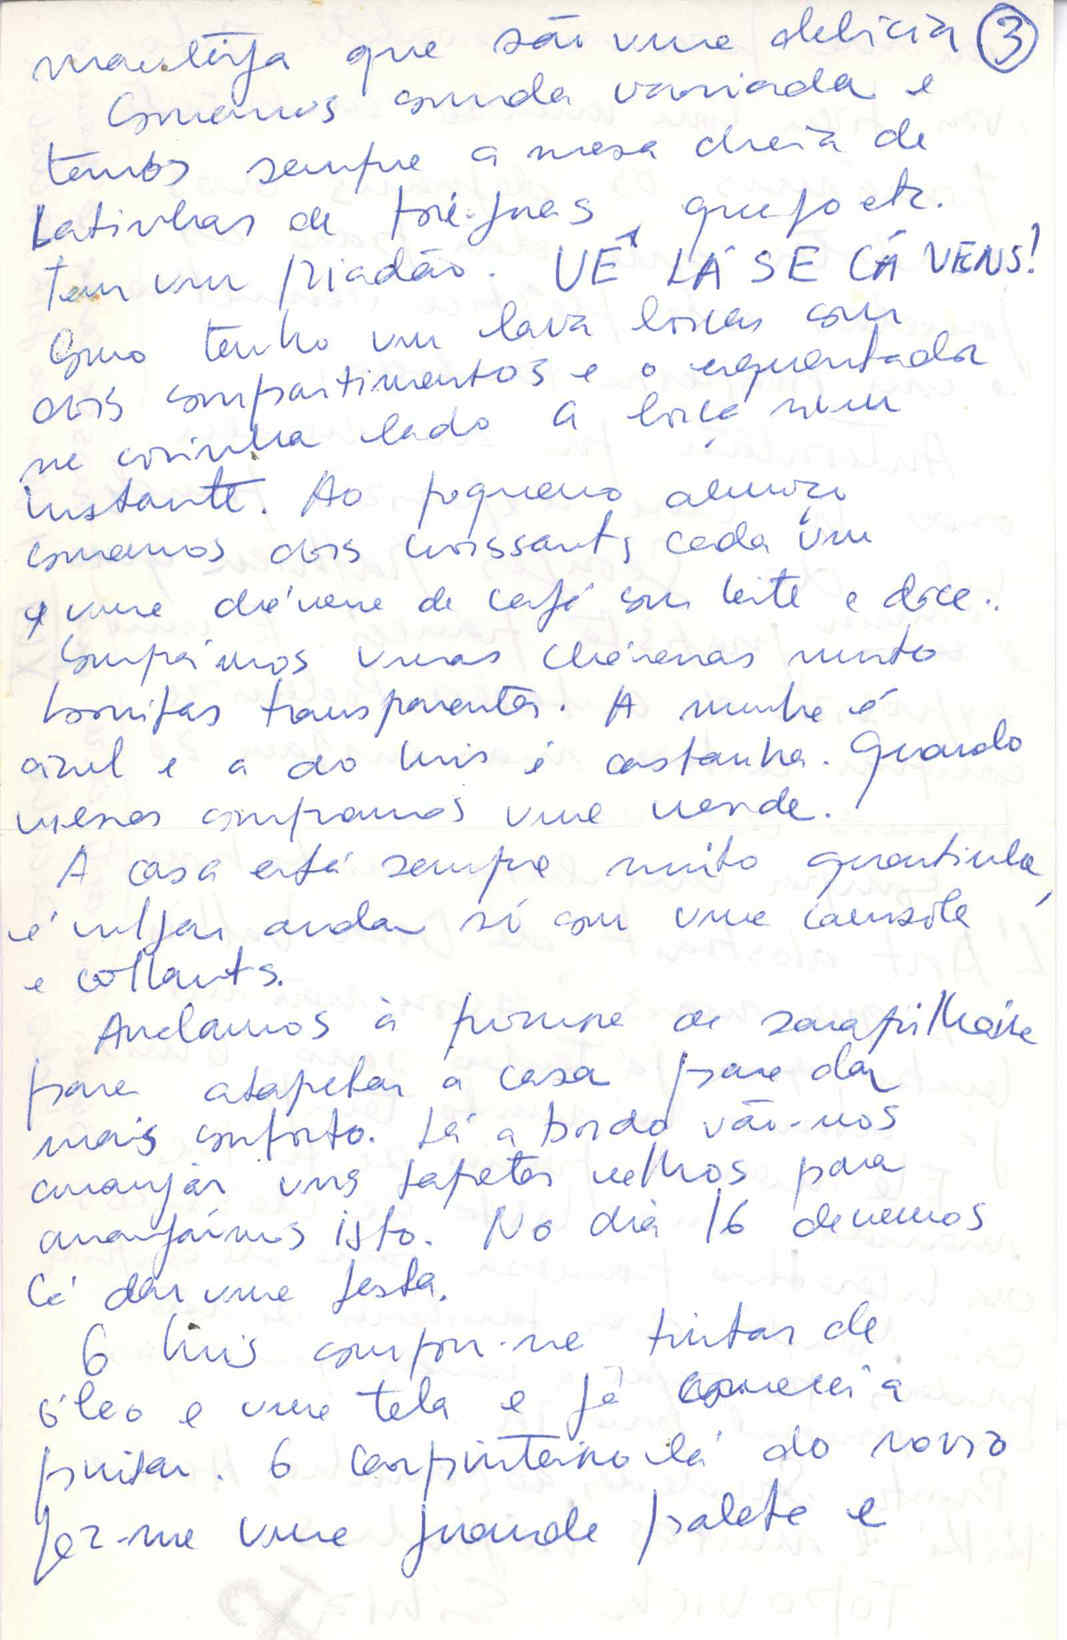 manteiga que são uma delicia 3
Comemos comida variada e
temos sempre a mesa cheia de
Latinhas de foie-gras, queijo etc.
tem um piadão. VÊ LÁ SE CÁ VENS!
Como tenho um lava loiças com
dois compartimentos e o esquentador
na cosinha lado a loiça num
instante. Ao pequeno almoço
comemos dois croissants cada um
e uma chávena de café com leite e doce.
Comprámos umas chávenas muito
bonitas transparentes. A minha é
azul e a do Luis é castanha. Quando
vieres compramos uma verde.
A casa está sempre muito quentinha,
é vulgar andar só com uma camisola
e collants.
Andamos à procura de sarapilheira
para atapetar a casa para dar
mais conforto. Lá a bordo vão-nos
arranjar uns tapetes velhos para
arranjarmos isto. No dia 16 devemos
cá dar uma festa.
O Luis comprou-me tintas de
óleo e uma tela e já comecei a
pintar. O carpinteiro lá do navio
fez-me uma grande palete e